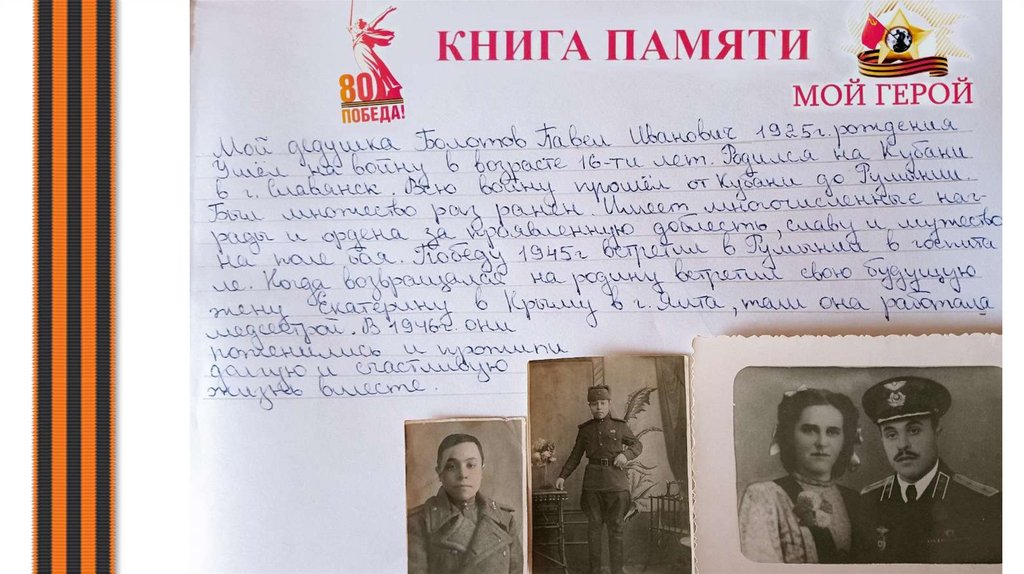 80
ПОБЕДА!
КНИГА ПАМЯТИ
МОЙ ГЕРОЙ
Мой дедушка Болотов Павел Иванович 1925г. рождения
Ушёл на войну в возрасте 16-ти лет. Родился на Кубани
в г. Славянск. Всю войну прошёл от Кубани до Румынии.
Был множество раз ранен. Имеет многочисленные наг-
рады и ордена за проявленную доблесть, славу и мужество
на поле боя. Победу 1945г встретил в Румынии в госпита
ле. Когда возвращался на родину встретил свою будущую
жену Екатерину в Крыму в г. Ялта, там она работала
медсестрой. В 1946г. они
поженились и прожили
долгую и счастливую
жизнь вместе.